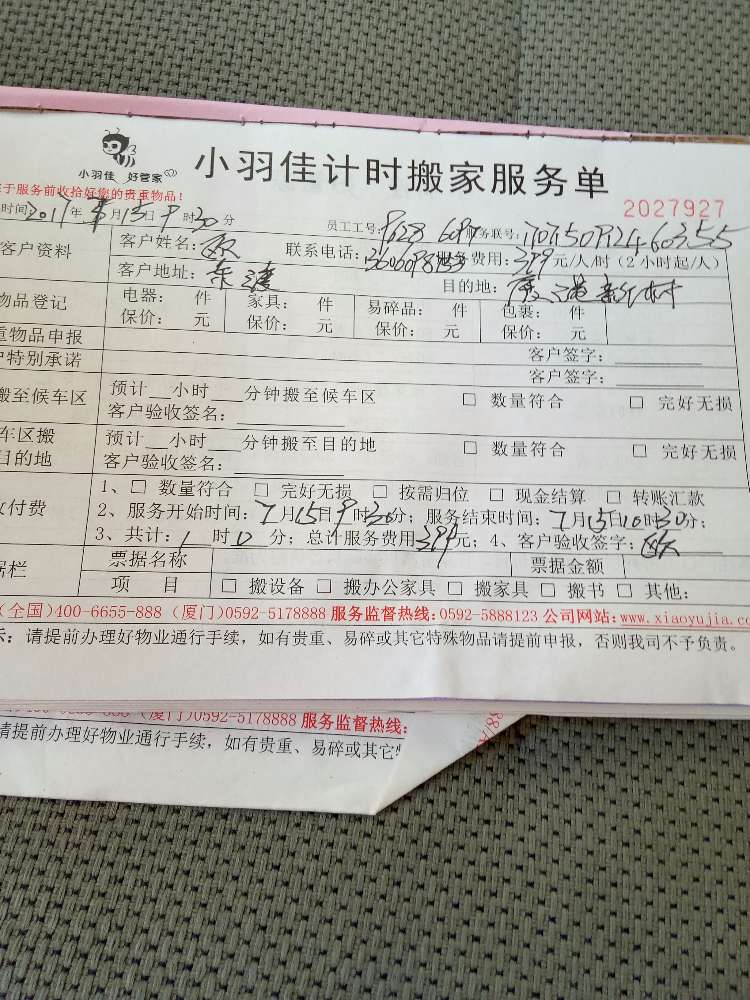 小羽佳 好管家
小羽佳计时搬家服务单
于服务前收拾好您的贵重物品！
2027927
时间:2017年 月15日9时30分 员工工号: 务联号:
客户资料 客户姓名:欧 联系电话: 费用: 元/人/时（2小时起/人）
客户地址:东渡 目的地:
物品登记 电器: 件 家具: 件 易碎品: 件 包裹: 件
保价: 元 保价: 元 保价: 元 保价: 元
重物品申报 客户签字:
户特别承诺 客户签字:
搬至候车区 预计__小时___分钟搬至候车区 □ 数量符合 □ 完好无损
客户验收签名:
车区搬 预计__小时___分钟搬至目的地 □ 数量符合 □ 完好无损
目的地 客户验收签名:
付费 1、□ 数量符合 □ 完好无损 □ 按需归位 □ 现金结算 □ 转账汇款
2、服务开始时间:7月15日9时30分；服务结束时间:7月15日10时30分；
3、共计:1时0分；总计服务费用399元；4、客户验收签字:欧
栏 票据名称 票据金额
项 目 □ 搬设备 □ 搬办公家具 □ 搬家具 □ 搬书 □ 其他:
(全国)400-6655-888 (厦门)0592-5178888 服务监督热线:0592-5888123 公司网站:www.xiaoyujia.co
示: 请提前办理好物业通行手续，如有贵重、易碎或其它特殊物品请提前申报，否则我司不予负责。
(厦门)0592-5178888 服务监督热线:
请提前办理好物业通行手续，如有贵重、易碎或其它